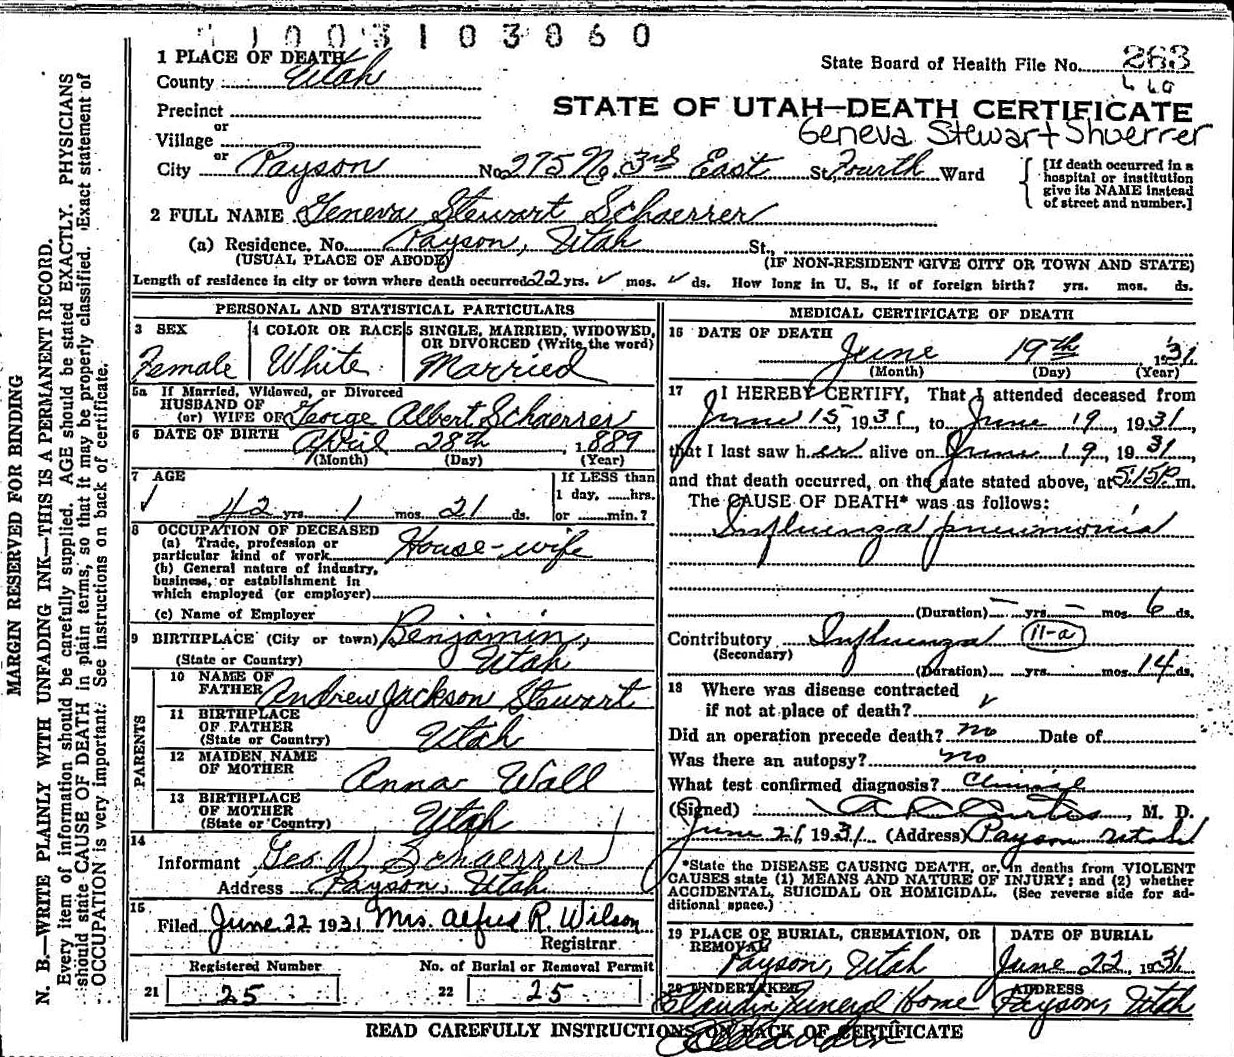 1003103860
1 PLACE OF DEATH
County Utah
State Board of Health File No. 263
Precinct
STATE OF UTAH—DEATH CERTIFICATE
or
Village
Geneva Stewart Shuerrer
or
City Payson No. 275 No. 3rd East St, Fourth Ward
[If death occurred in a
hospital or institution
give its NAME instead
of street and number.]
2 FULL NAME Geneva Stewart Schaerrer
(a) Residence. No. Payson, Utah St.,
(USUAL PLACE OF ABODE)
(IF NON-RESIDENT GIVE CITY OR TOWN AND STATE)
Length of residence in city or town where death occurred 22 yrs. ✓ mos. ✓ ds. How long in U. S., if of foreign birth? yrs. mos. ds.
PERSONAL AND STATISTICAL PARTICULARS
3 SEX
Female
4 COLOR OR RACE
White
5 SINGLE, MARRIED, WIDOWED,
OR DIVORCED (Write the word)
Married
5a If Married, Widowed, or Divorced
HUSBAND OF
(or) WIFE OF George Albert Schaerrer
6 DATE OF BIRTH April 28th, 1889
(Month) (Day) (Year)
7 AGE
✓ 42 yrs. 1 mos. 21 ds.
If LESS than
1 day, ......hrs.
or ......min.?
8 OCCUPATION OF DECEASED
(a) Trade, profession or
particular kind of work House-wife
(b) General nature of industry,
business, or establishment in
which employed (or employer)
(c) Name of Employer
9 BIRTHPLACE (City or town) Benjamin,
(State or Country) Utah
PARENTS
10 NAME OF
FATHER Andrew Jackson Stewart
11 BIRTHPLACE
OF FATHER
(State or Country) Utah
12 MAIDEN NAME
OF MOTHER Anna Wall
13 BIRTHPLACE
OF MOTHER
(State or Country) Utah
14
Informant Geo A Schaerrer
Address Payson, Utah
15
Filed June 22 1931 Mrs. Alfred R. Wilson
Registrar
Registered Number
21 25
No. of Burial or Removal Permit
22 25
MEDICAL CERTIFICATE OF DEATH
16 DATE OF DEATH
June 19th 1931
(Month) (Day) (Year)
17 I HEREBY CERTIFY, That I attended deceased from
June 15, 1931, to June 19, 1931,
that I last saw her alive on June 19, 1931,
and that death occurred, on the date stated above, at 5:15p m.
The CAUSE OF DEATH* was as follows:
Influenza pneumonia
(Duration) – yrs. – mos. 6 ds.
Contributory Influenza 11-a
(Secondary)
(Duration) yrs. mos. 14 ds.
18 Where was disease contracted
if not at place of death? ✓
Did an operation precede death? no Date of
Was there an autopsy? no
What test confirmed diagnosis? Clinical
(Signed) Curtis, M. D.
June 21, 1931 (Address) Payson Utah
*State the DISEASE CAUSING DEATH, or, in deaths from VIOLENT
CAUSES state (1) MEANS AND NATURE OF INJURY; and (2) whether
ACCIDENTAL, SUICIDAL OR HOMICIDAL. (See reverse side for ad-
ditional space.)
19 PLACE OF BURIAL, CREMATION, OR
REMOVAL
Payson, Utah
DATE OF BURIAL
June 22, 1931
20 UNDERTAKER
Claudin Funeral Home
ADDRESS
Payson, Utah
READ CAREFULLY INSTRUCTIONS ON BACK OF CERTIFICATE
MARGIN RESERVED FOR BINDING
N. B.—WRITE PLAINLY WITH UNFADING INK—THIS IS A PERMANENT RECORD.
Every item of information should be carefully supplied. AGE should be stated EXACTLY. PHYSICIANS
should state CAUSE OF DEATH in plain terms, so that it may be properly classified. Exact statement of
OCCUPATION is very important. See instructions on back of certificate.